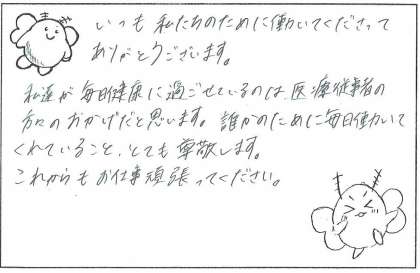 いつも私たちのために働いてくださって
ありがとうございます。
私達が毎日健康に過ごせているのは、医療従事者の
方々のおかげだと思います。誰かのために毎日働いて
くれていること、とても尊敬します。
これからもお仕事頑張ってください。